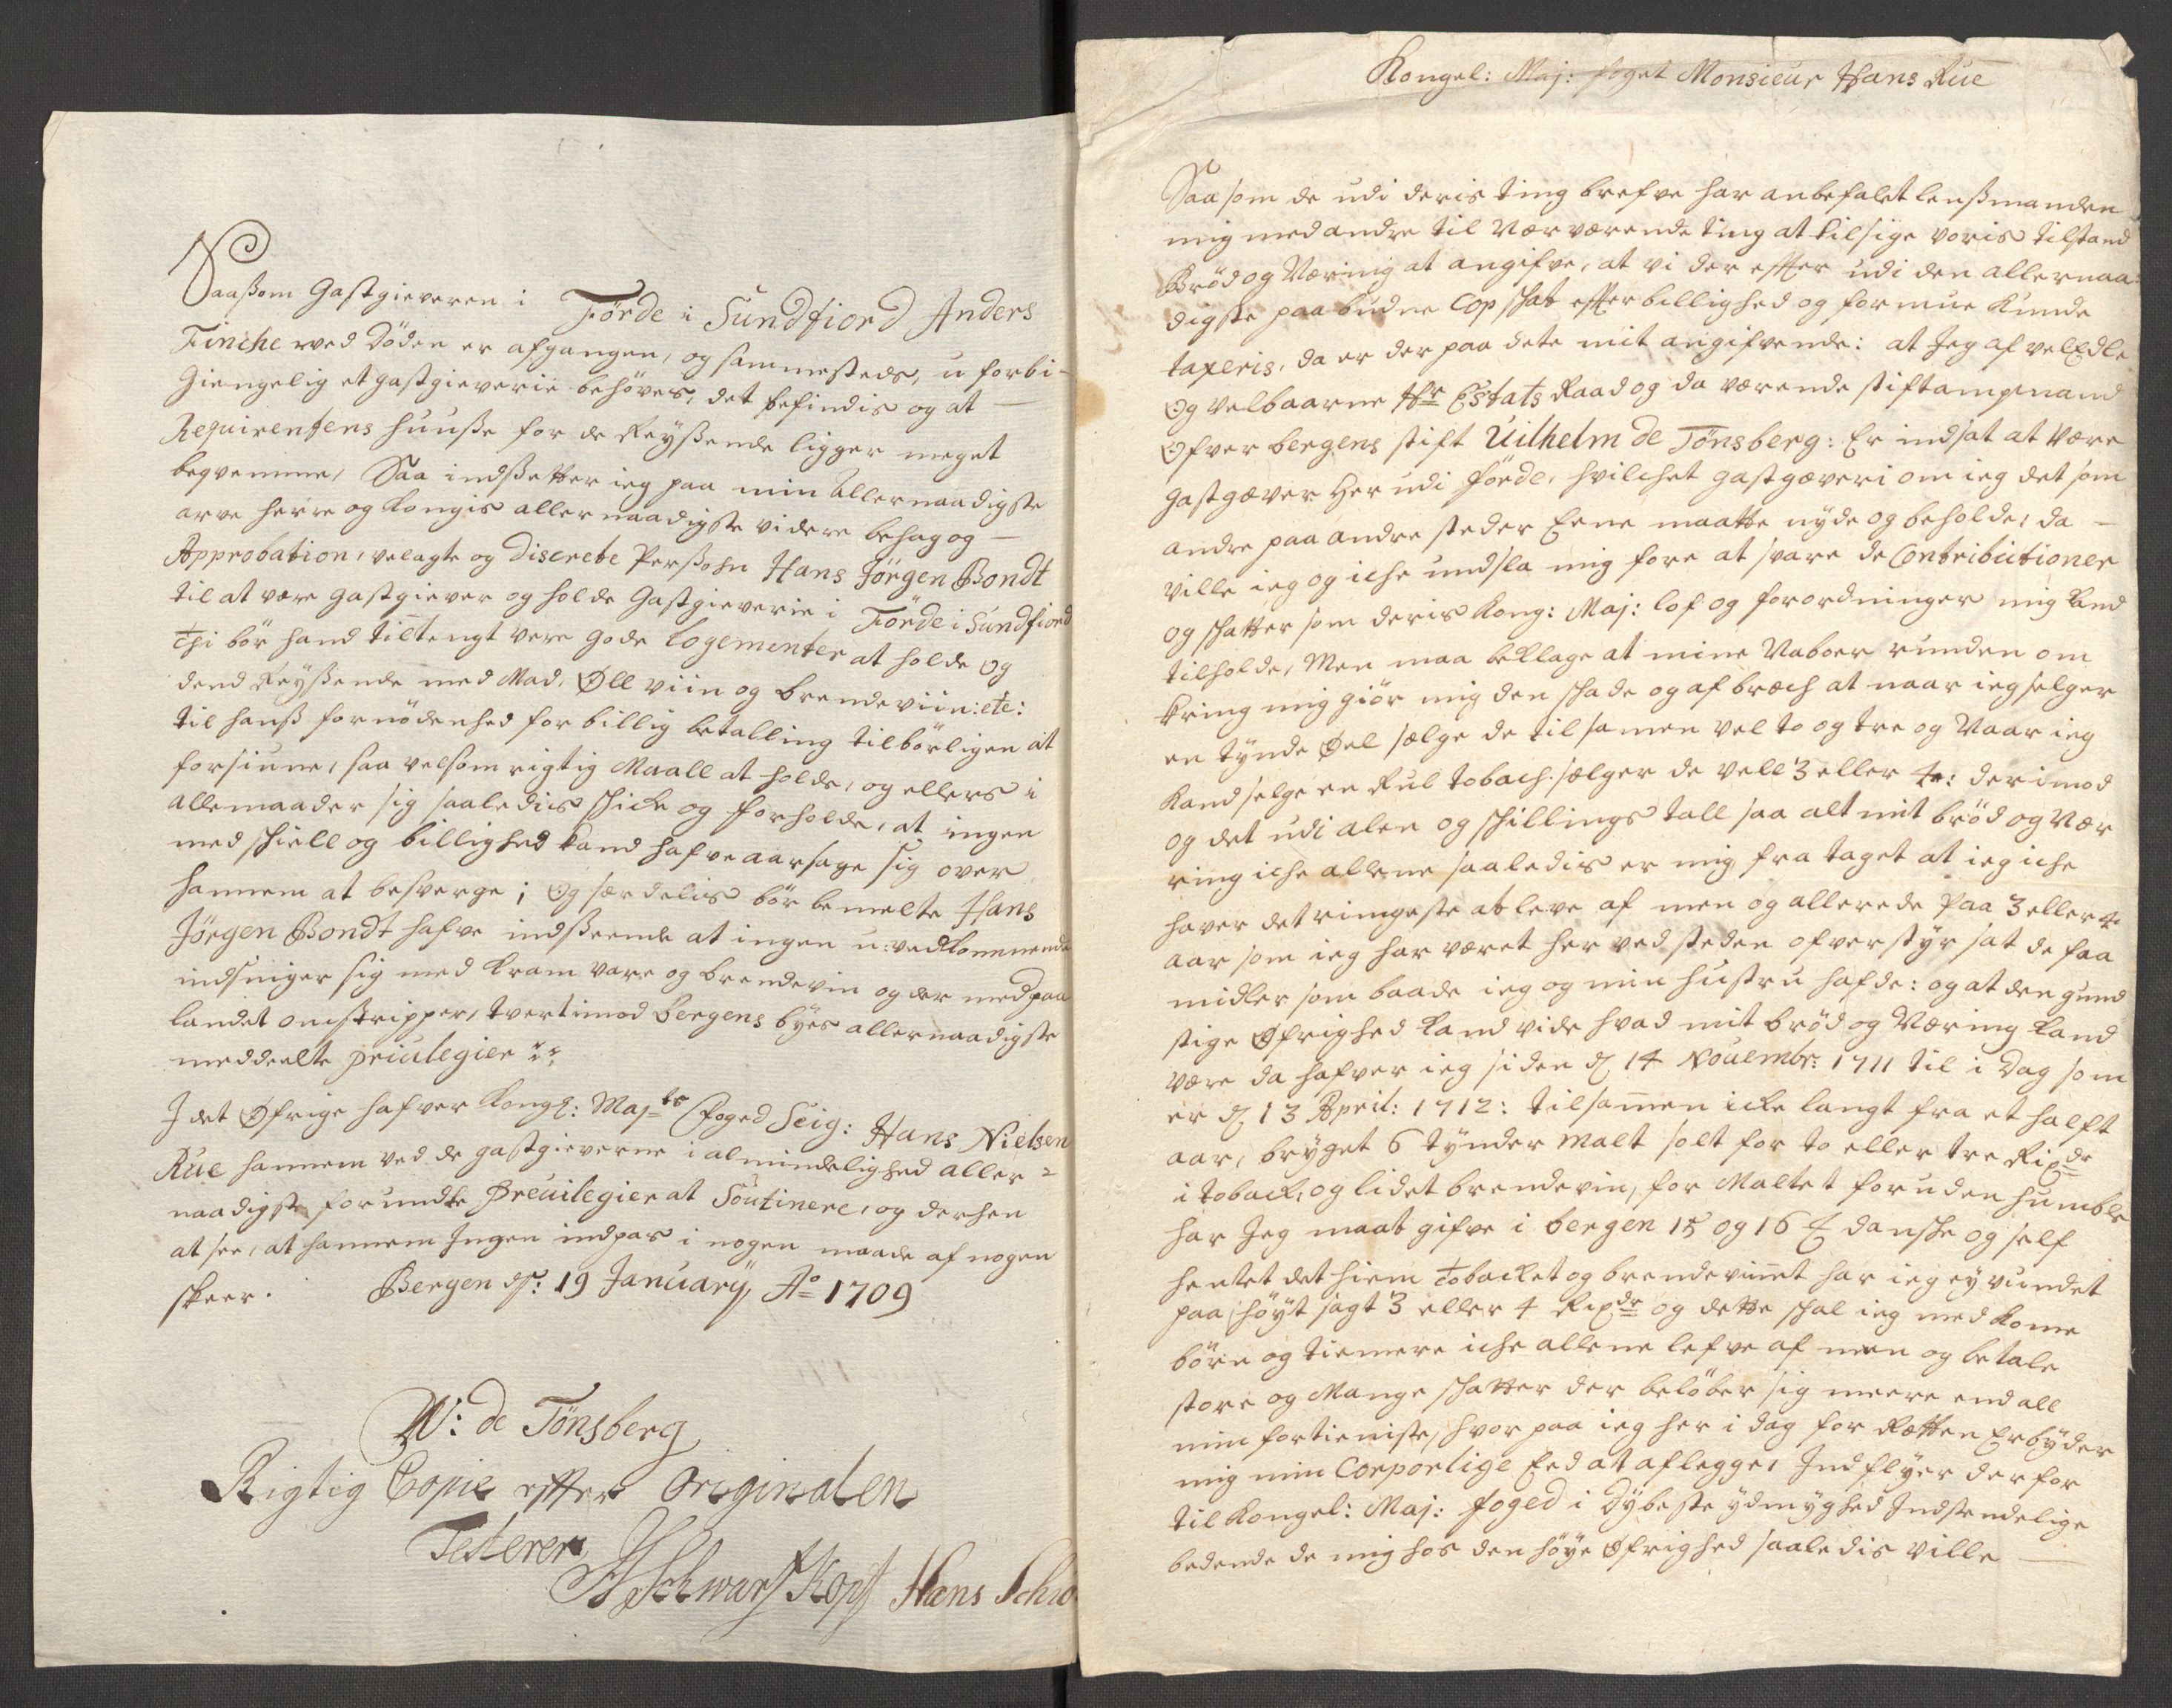 Saaßom Gastgieveren i Förde i Sundfiord Anders
Finche wed Döden er afgangen, og sammesteds, u forbi-
giengelig et gastgieverie behöves, det befindis og at
Requirentens huuße for de Reyßende ligger meget
beqvemme, Saa indßetter ieg paa min Allernaadigste
arve herre og Kongis allernaadigste videre behag og
Approbation, velagte og Discrete Perßohn Hans Jörgen Bondt
til at være gastgiever og holde Gastgieverie i Förde i Sundfiord
Thi bör hand tiltengt vere gode logementer at holde og
dend Reyßende med Mad, Øll viin og brendeviin: etc:
til hanß fornödenhed for billig betalling tilbörligen at
forsiune, saa velsom rigtig Maall at holde, og ellers i
alle maader sig saaledis schicke og forholde, at ingen
med schiell og billighed kand hafve aarsage sig over
hannem at besverge; Og særdelis bör bemelte Hans
Jörgen Bondt hafve indßeende at ingen u:vedkommende
indsniger sig med kram vare og brendevin og der med paa
landet omstripper, tvertimod Bergens byes allernaadigste
meddeelte priulegier
I det Øfrige hafver Kongl: Maj:ts foged Seig: Hans Nielsen
Rue hannem ved de gastgieverne i almindelighed aller=
naadigste forundte Preuilegier at Soutinere, og derhen
at see, at hannem Ingen indpas i nogen maade af nogen
skeer. Bergen d: 19 January Ao 1709
W: de Tönsberg
Rigtig Copie efter Originalen
Testerer
A Schwartzkopf Hans Schrö
Kongel: Maj: foget Monsieur Hans Rue
Saa som de udi deris ting brefve har anbefalet lenßmanden
mig med andre til Nærværende ting at tilsige voris tilstand
Bröd og Næring at angifve, at vi der effter udi den allernaa-
digste paabudne Cop schat effter billighed og formue kunde
taxeris, da er der paa dete mit angifvende: at Jeg af velEdle
Og velbaarne Hr Estats Raad og da værende stiftampmand
Ofver bergens stift Uilhelm de Tönsberg: Er indsat at være
gastgæver Her udi förde, hvilchet gastgæveri om ieg det som
andre paa andre steder Eene maatte nyde og beholde, da
ville ieg og iche undsla mig fore at svare de Contributioner
og schatter som deris Kong: Maj: lof og forordninger mig kand
tilholde, Men maa beklage at mine Naboer runden om
kring mig giör mig den schade og afbrech at naar ieg selger
en tynde Øel sælge de tilsamen vel to og tre og Naar ieg
kand selge en Rul tobach. sælger de vell 3 eller 4: derimod
og det udi alen og schillings tall saa alt mit bröd og Nær
ring iche allene saaledis er mig fra taget at ieg iche
haver det ringeste at leve af men og allerede paa 3 eller 4
aar som ieg har været her ved steden ofver styr sat de faa
midler som baade ieg og min hustru hafde: og at den gund
stige Øfrighed kand vide hvad mit bröd og Næring kand
være da hafver ieg siden d 14 Nouembr: 1711 til i Dag som
er d 13 April: 1712: tilsamen icke langt fra et halft
aar, brÿget 6 tÿnder malt solt for to eller tre Rixdr
i toback, og lidet brendevin, for Maltet foruden humble
har Jeg maat gifve i bergen 15 og 16 ℔ dansche og self
hentet det hiem tobacket og brendevinet har ieg ey vundet
paa höyt sagt 3 eller 4 Rixdr og dette schal ieg med kone
börn og tienere iche allene lefve af men og betale
store og Mange schatter der belöber sig meere end all
min fortieniste, hvor paa ieg her i dag for Retten Erbyder
mig min Corporlige Eed at aflegge, Indflyer derfor
til Kongel: Maj: foged i Dybeste ydmyghed Indstendelige
bedende de mig hos den höye Øfrighed saaledis ville